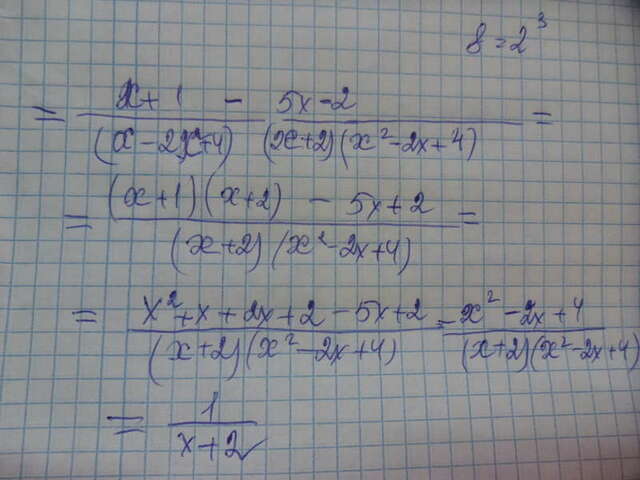 8 = 2³
= (x+1)/(x²-2x+4) - (5x-2)/((x+2)(x²-2x+4)) =
= ((x+1)(x+2) - 5x+2)/((x+2)(x²-2x+4)) =
= (x²+x+2x+2-5x+2)/((x+2)(x²-2x+4)) = (x²-2x+4)/((x+2)(x²-2x+4))
= 1/(x+2)